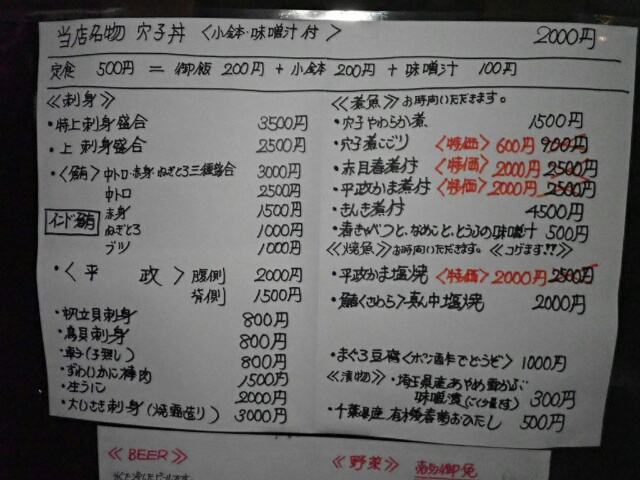 当店名物 穴子丼 〈小鉢・味噌汁付〉 2000円
定食 500円 = 御飯 200円 + 小鉢 200円 + 味噌汁 100円
≪刺身≫
・特上刺身盛合 3500円
・上 刺身盛合 2500円
・〈鮪〉中トロ・赤身・ねぎとろ三種盛合 3000円
中トロ 2500円
インド鮪
赤身 1500円
ねぎとろ 1000円
ブツ 1000円
・〈平 政〉腹側 2000円
背側 1500円
・帆立貝刺身 800円
・鳥貝刺身 800円
・章子(子短し) 800円
・ずわいかに棒肉 1500円
・生うに 2000円
・大しまき刺身(焼霜造り) 3000円
≪煮魚≫お時間いただきます。
・穴子やわらか煮 1500円
・穴子煮こごり 〈特価〉600円 900円
・赤目春煮付 〈特価〉2000円 2500円
・平政かま煮付 〈特価〉2000円 2500円
・きんき煮付 4500円
・春きゃべつと、なめこと、とうふの味噌汁 500円
≪焼魚≫お時間いただきます。 ≪コゲます!!≫
・平政かま塩焼 〈特価〉2000円 2500円
・鰆〈さわら〉真ん中塩焼 2000円
・まぐろ豆腐〈ポン酢でどうぞ〉 1000円
≪漬物≫・埼玉県産あやめ雪かぶ
味噌漬(ごく少量です) 300円
・千葉県産 有機春菊おひたし 500円
≪BEER≫
≪野菜≫